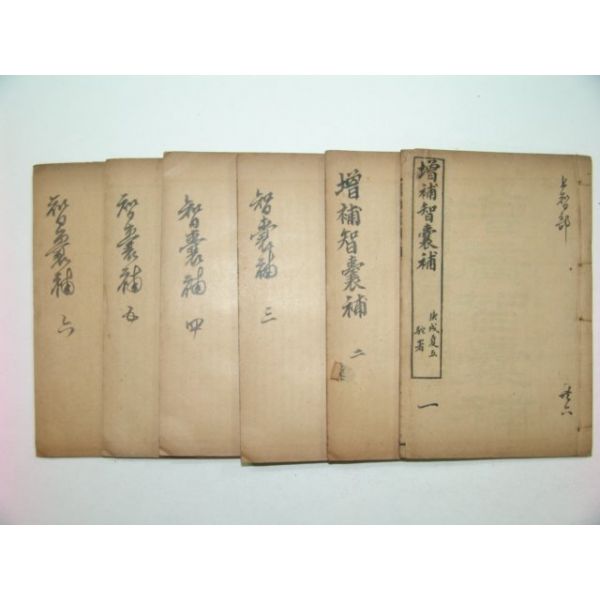 上智部
共六
增補智囊補
庚戌夏五
一
增補智囊補
二
智囊補
三
智囊補
四
智囊補
五
智囊補
六